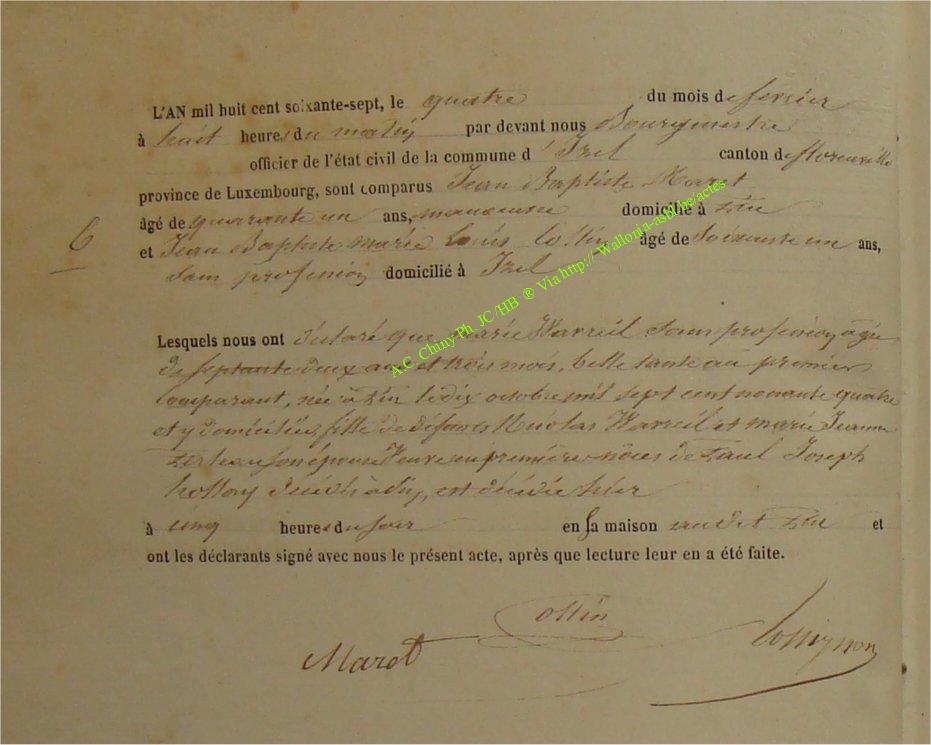 L'AN mil huit cent soixante-sept, le quatre du mois de fevrier
à huit heures du matin par devant nous Bourgmestre
officier de l'état civil de la commune d'Izel canton de florenville
province de Luxembourg, sont comparus Jean Baptiste Marot
âgé de quarante un ans, manœuvre domicilié à
6
et Jean Baptiste Marie Louis Collin âgé de Soixante un ans,
Sans profession domicilié à Izel
Lesquels nous ont déclaré que Marie Warveil Sans profession, agée
de septante deux ans et trois mois, belle tante au premier
Comparant, née à le dix octobre mil sept cent nonante quatre
et y domiciliée, fille de défunts Nicolas Warveil et Marie Jeanne
son épouse Veuve en première noces de Paul Joseph
décédé à est décédée hier
à cinq heures du soir en sa maison audit et
ont les déclarants signé avec nous le présent acte, après que lecture leur en a été faite.
Marot
A.C. Chiny Ph. JC/HB ® Via http://Wallonia-asbl.be/actes